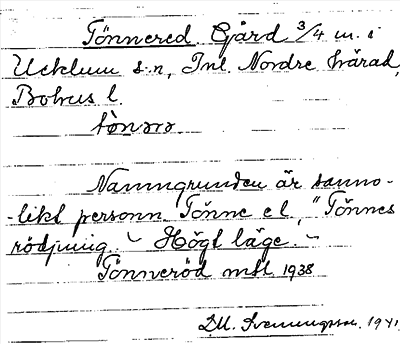 Tönnered Gård 3/4 m. i
Ucklum s:n, Inl. Nordre härad,
Bohus l.
tònərə
Namngrunden är sanno-
-likt personn. Tönne el. "Tönnes
rödjning. Högt läge.
Tönneröd mtl 1938
D.U. Svenungsson. 1941